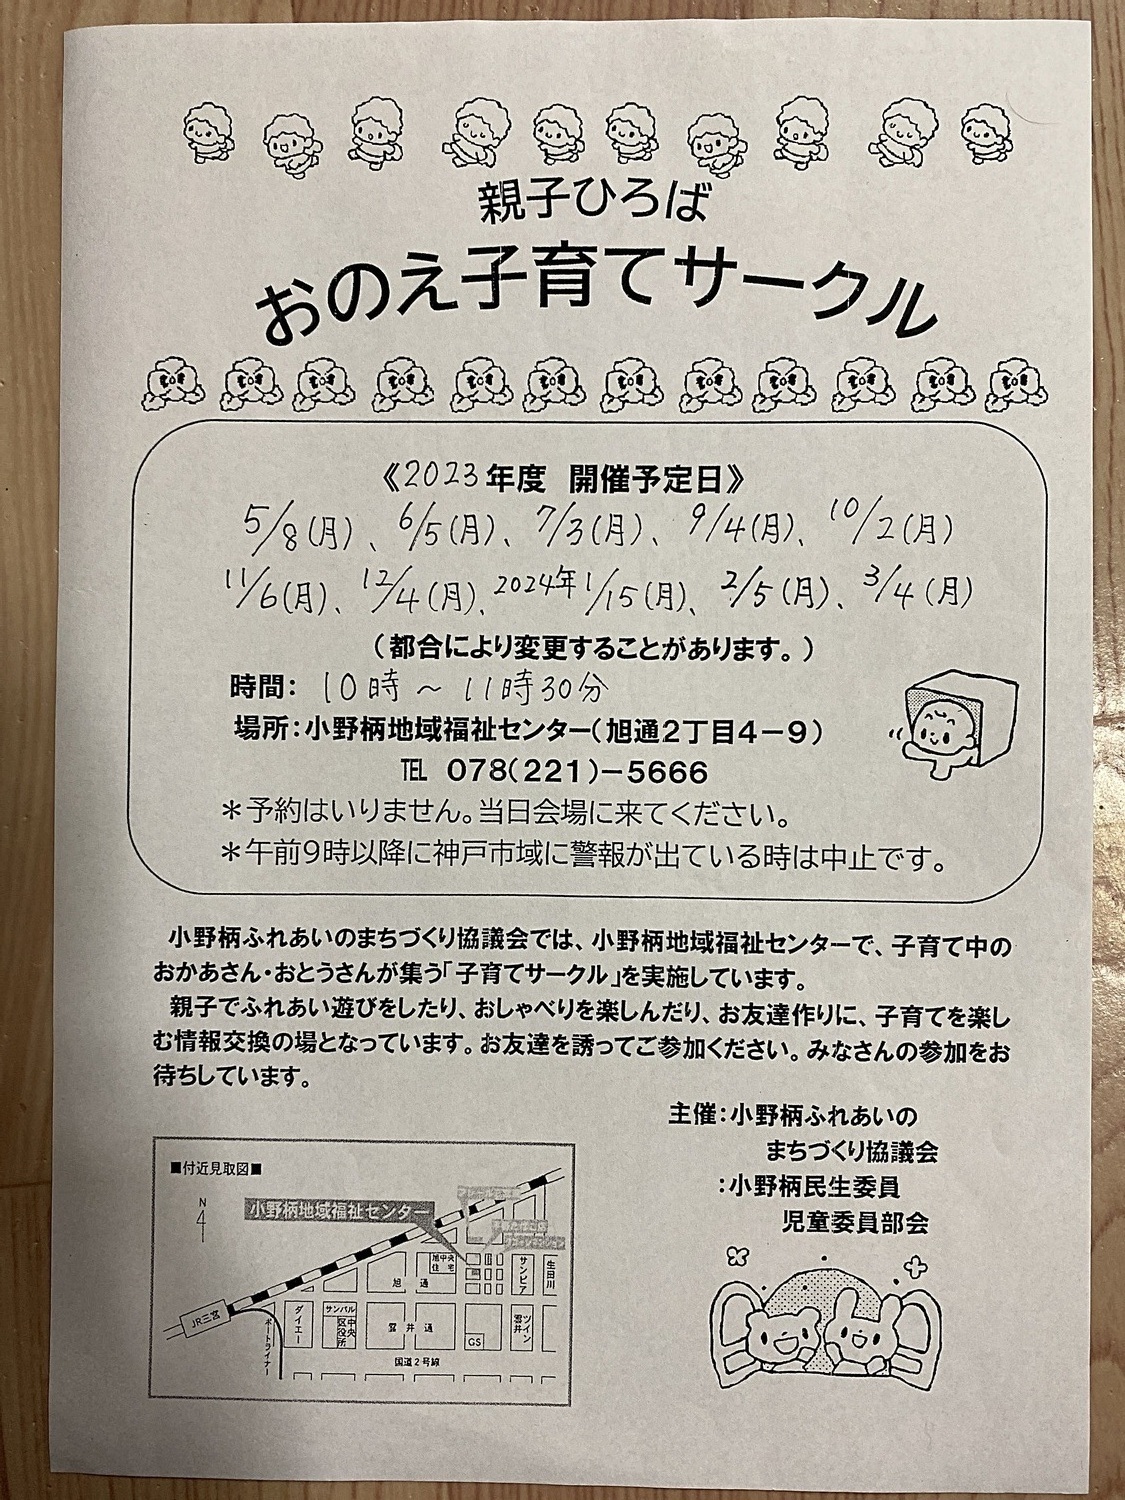 親子ひろば
おのえ子育てサークル
《2023年度 開催予定日》
5/8(月)、6/5(月)、7/3(月)、9/4(月)、10/2(月)
11/6(月)、12/4(月)、2024年1/15(月)、2/5(月)、3/4(月)
(都合により変更することがあります。)
時間: 10時~11時30分
場所:小野柄地域福祉センター(旭通2丁目4-9)
℡ 078(221)-5666
*予約はいりません。当日会場に来てください。
*午前9時以降に神戸市域に警報が出ている時は中止です。
小野柄ふれあいのまちづくり協議会では、小野柄地域福祉センターで、子育て中の
おかあさん・おとうさんが集う「子育てサークル」を実施しています。
親子でふれあい遊びをしたり、おしゃべりを楽しんだり、お友達作りに、子育てを楽し
む情報交換の場となっています。お友達を誘ってご参加ください。みなさんの参加をお
待ちしています。
主催:小野柄ふれあいの
まちづくり協議会
:小野柄民生委員
児童委員部会
■付近見取図■
N
小野柄地域福祉センター
旭中央
住宅
サンピア
生田川
旭 通
JR三宮
ポートライナー
ダイエー
サンパル
中央
区役所
雲井通
GS
ツイン
雲井
国道2号線